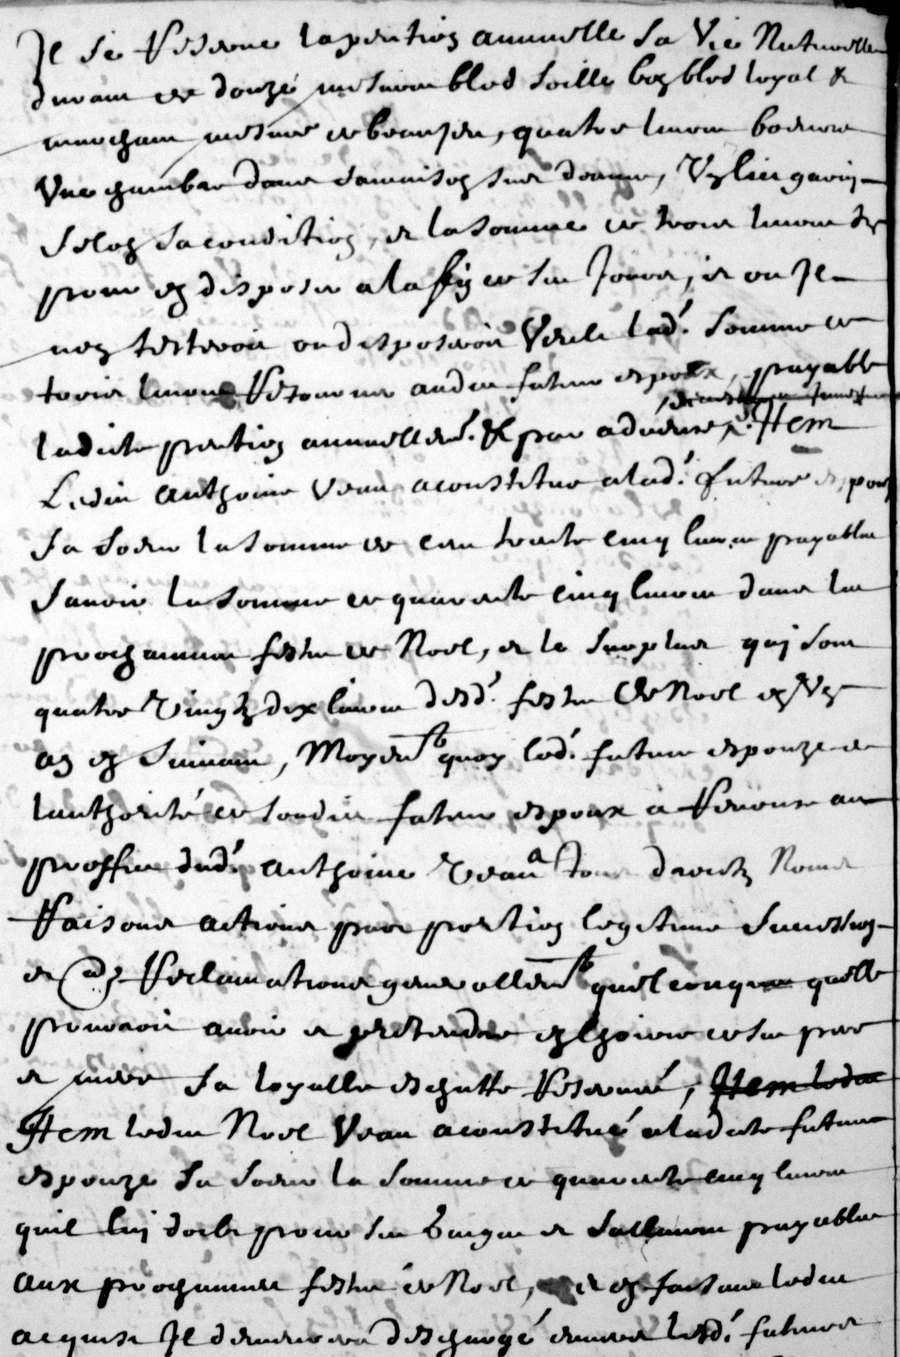 Il se reserve la pention annuelle sa vie naturelle
durant de douze mesures bled seille bon bled loyal &
marchant mesure de beaujeu, quatre livres beurre
une chambre dans sa maison sur devant, un lict garny
selon sa condition, et la somme de trois livres
pour en disposer a la fin de ses jours, et ou Il
non testeroit ou disposeroit veult lad. somme de
trois livres retourner audit futur espoux, payable
ladicte pention annuellemt. & par advance, Item
Ledit anthoine veau a constitue a lad. future espouze
sa soeur la somme de cent trente cinq livres payables
scavoir la somme de quarente cinq livres dans les
prochaines festes de Noel, et le surplus qui sont
quatre vingts dix livres desd. festes de Noel en un
an en suivant, Moyent quoy lad. future espouze de
lauthorité de sondit futur espoux a renoncé au
proffit dud. anthoine veau a tous droicts Noms
Raisons actions part portion legitime succession
et a Reclamations generallemt quelconques quelle
pourroit avoir et pretendre en lhoirie de ses pere
et mere sa loyalle escheutte reservée, Item ledit
Item ledit Noel veau a constitué a ladicte future
espouze sa soeur la somme de quarente cinq livres
quil luy doibt pour ses gages et sallaires payables
aux prochaines festes de Noel, et en faisant ledit
acquit Il demeurera deschargé envers lesd. futurs